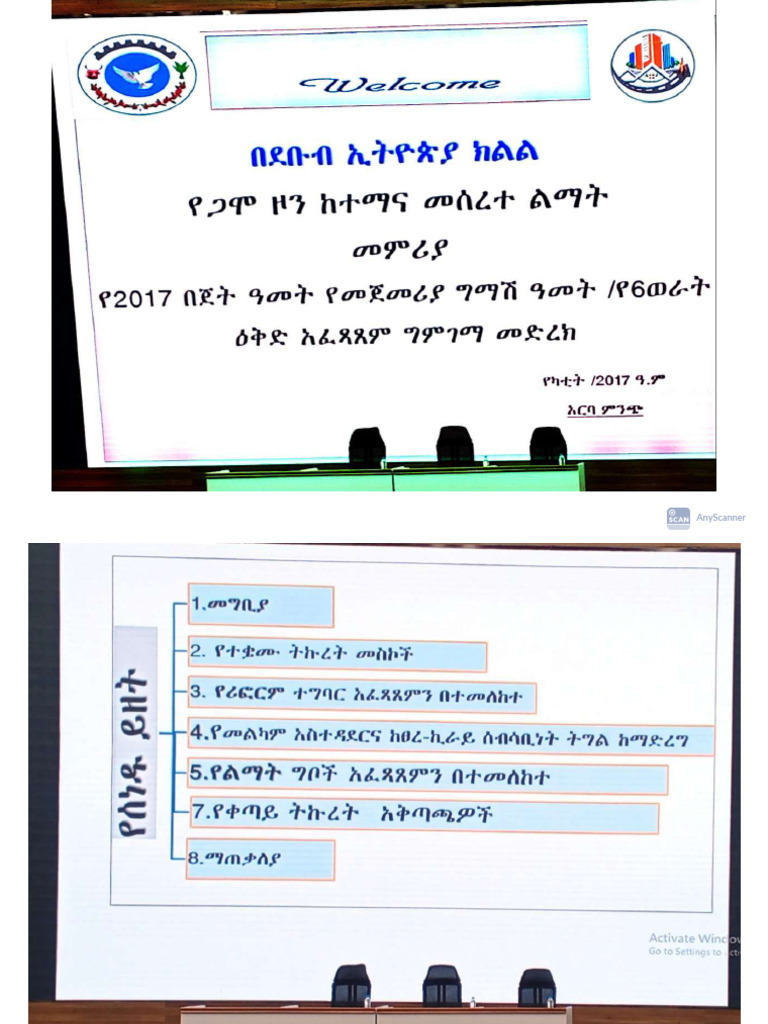 Welcome
በደቡብ ኢትዮጵያ ክልል
የጋሞ ዞን ከተማና መሰረተ ልማት
መምሪያ
የ2017 በጀት ዓመት የመጀመሪያ ግማሽ ዓመት /የ6ወራት
ዕቅድ አፈጻጸም ግምገማ መድረክ
የካቲት /2017 ዓ.ም
አርባ ምንጭ
SCAN AnyScanner
የሰነዱ ይዘት
1.መግቢያ
2. የተቋሙ ትኩረት መስኮች
3. የሪፎርም ተግባር አፈጻጸምን በተመለከተ
4.የመልካም አስተዳደርና ከፀረ-ኪራይ ሰብሳቢነት ትግል ከማድረግ
5.የልማት ግቦች አፈጻጸምን በተመለከተ
7.የቀጣይ ትኩረት አቅጣጫዎች
8.ማጠቃለያ
Activate Window
Go to Settings to acti